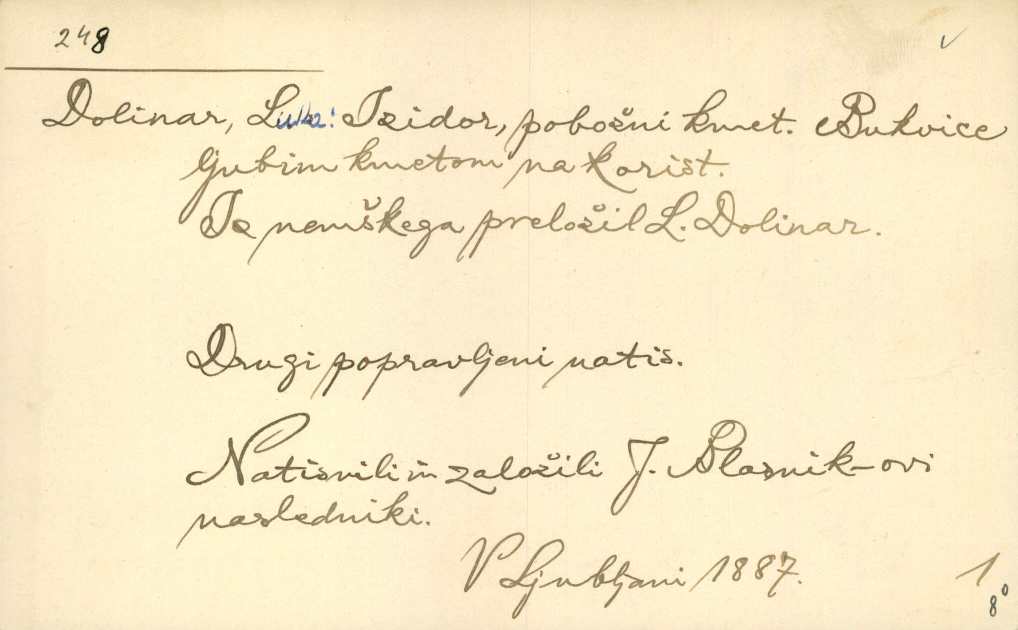 248
Dolinar, Luka: Izidor, pobožni kmet. Bukvice
ljubim kmetom na korist.
Iz nemškega preložil L. Dolinar.
Drugi popravljeni natis.
Natisnili in založili J. Blasnik-ovi
nasledniki.
V Ljubljani 1887.
1
8°